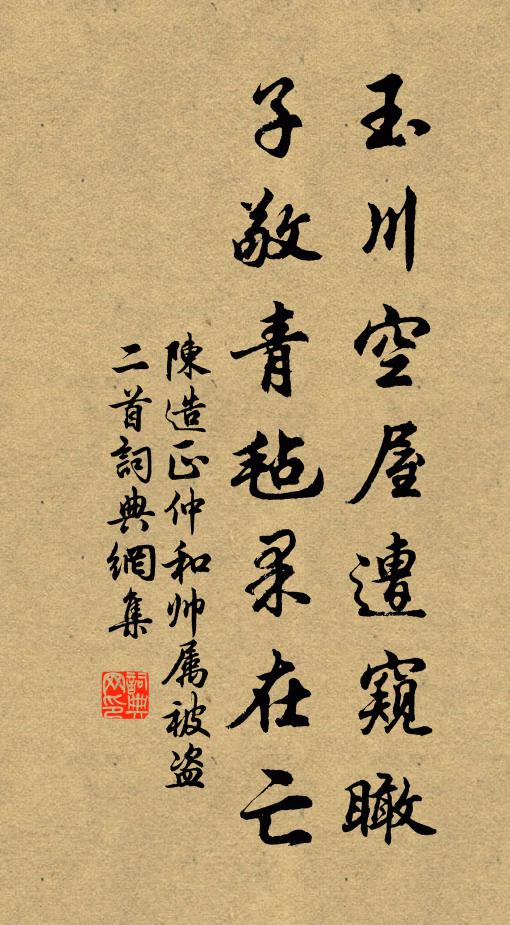 玉川空屋遭窺瞰
子敬青毡果在亡
陳造正仲和帅属被盗
二首詞典網集
詞典网印